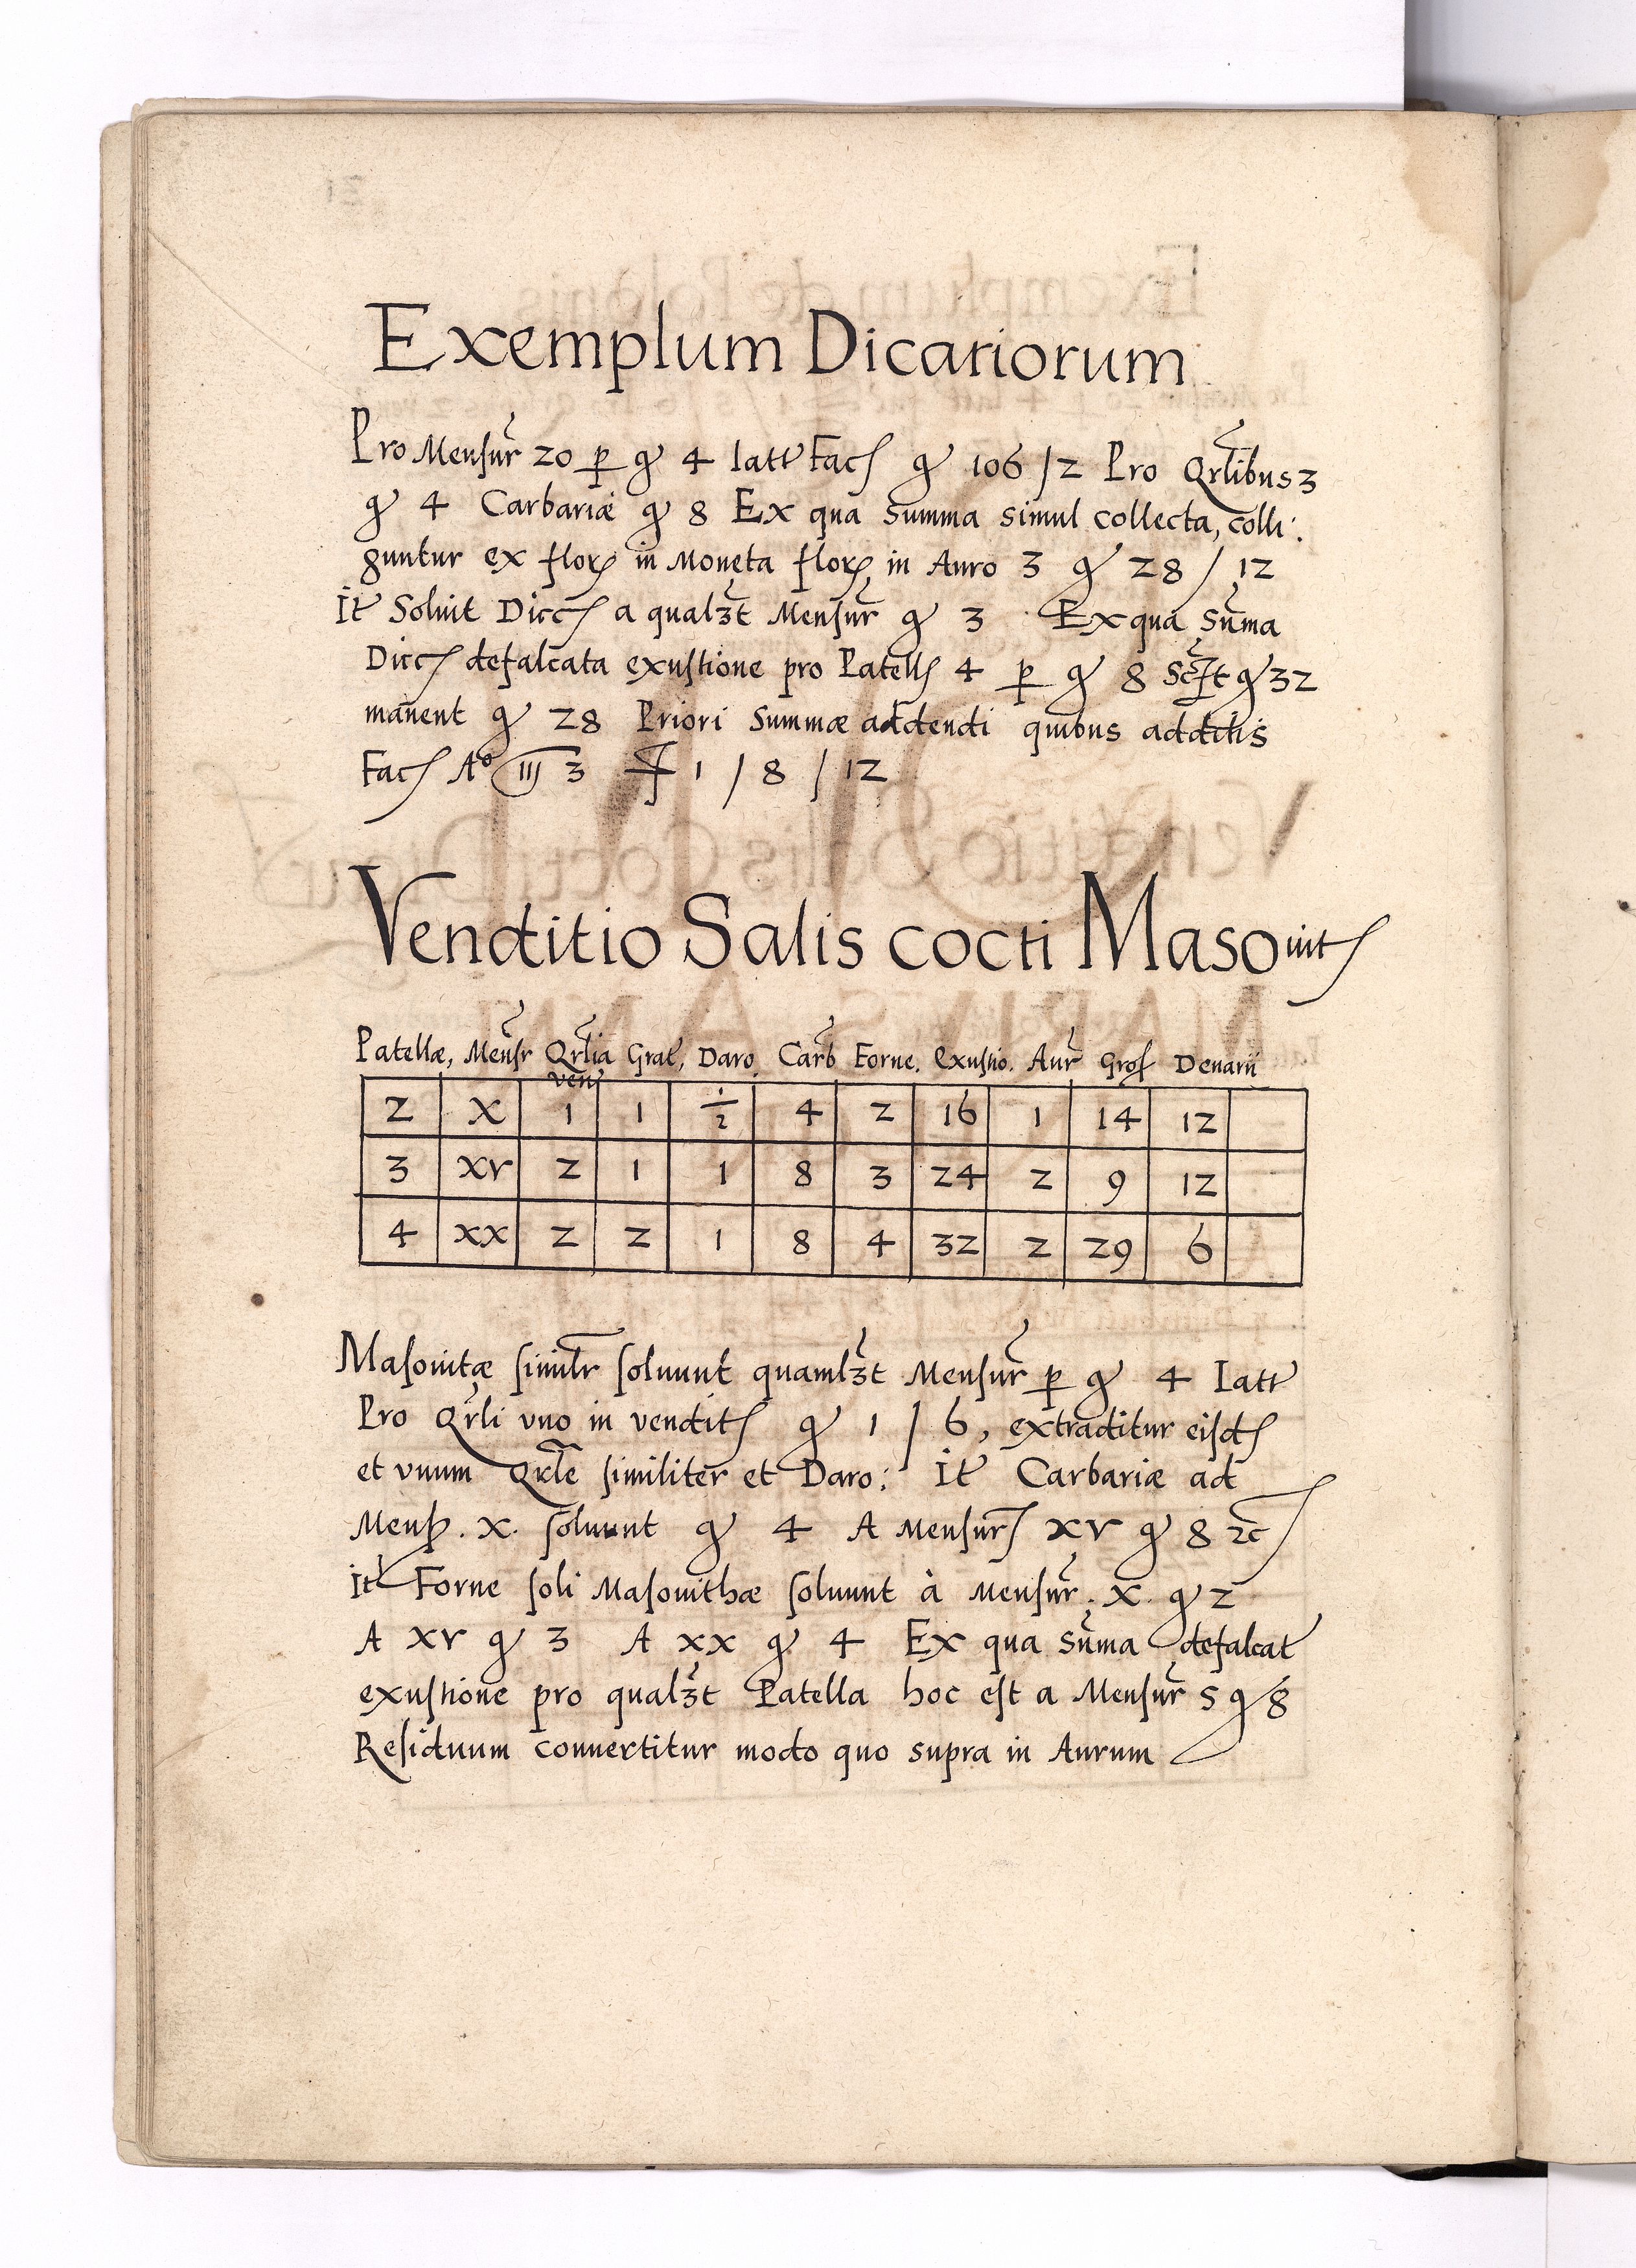 Exemplum Dicariorum
Pro Mensur 20 p gr 4 latt Fac gr 106 / 2 Pro Qrlibus 3
gr 4 Carbariæ gr 8 Ex qua summa simul collecta, colli:
guntur ex flor in Moneta flor in Auro 3 gr 28 / 12
It Soluit Dicc a qualzt Mensur gr 3 Ex qua suma
Dicc defalcata exustione pro Patell 4 p gr 8 gr 32
manent gr 28 Priori summæ addendi quibus additis
Fac A° III 3 1 / 8 / 12
Venditio Salis cocti Masouit
Patellæ, Mensr Qrlia Grat, Daro. Carb Forne. exustio. Aur Gros Denarii
ven
2 X 1 1 1/2 4 2 16 1 14 12
3 xv 2 1 1 8 3 24 2 9 12
4 xx 2 2 1 8 4 32 2 29 6
Masouitæ similr soluunt quamlzt Mensur p gr 4 Latt
Pro Qrli vno in vendit gr 1 / 6, extraditur eisd
et vnum Qrle similiter et Daro: It Carbariæ ad
Mens. X. soluunt gr 4 A Mensur xv gr 8 etc
It Forne soli Masouithæ soluunt à Mensur. X. gr 2
A xv gr 3 A xx gr 4 Ex qua suma defalcat
exustione pro qualzt Patella hoc est a Mensur 5 gr 8
Residuum conuertitur modo quo supra in Aurum